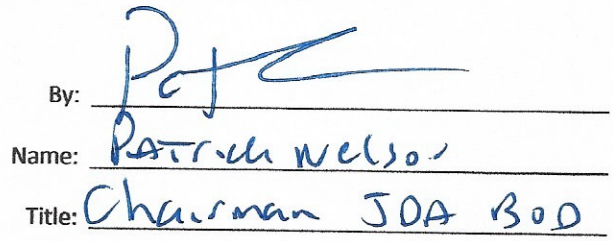 By: Pat
Name: Patrick Nelson
Title: Chairman JDA BOD